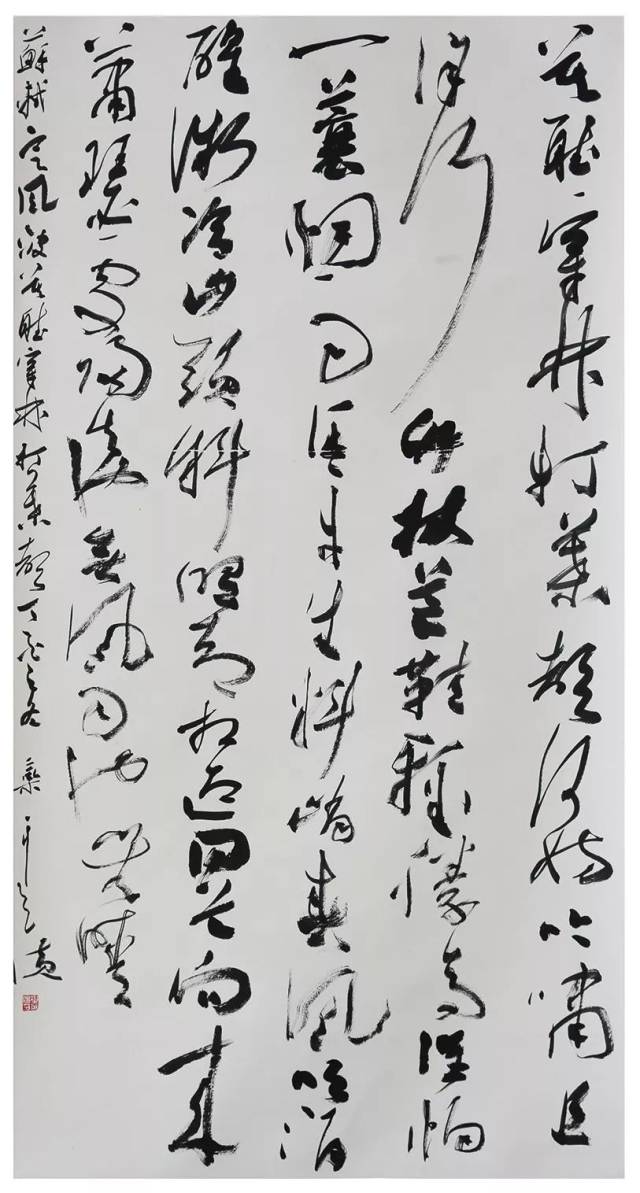 莫聽穿林打葉聲何妨吟嘯且
徐行竹杖芒鞋輕勝馬誰怕
一蓑烟雨任平生料峭春風吹酒
醒微冷山頭斜照却相迎回首向來
蕭瑟處歸去無風雨也無晴
蘇軾定風波莫聽穿林打葉聲丁酉之冬